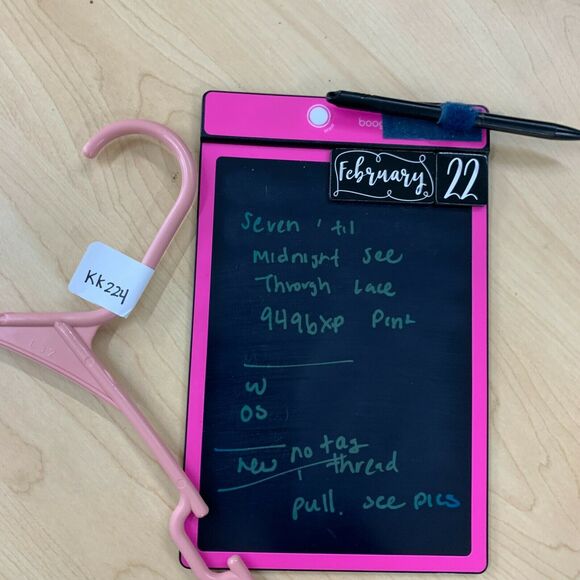 boog
February 22
KK224
L 12
Seven 'til
Midnight see
Through Lace
9496xp Pink
W
OS
new no tag
thread
pull. see pics